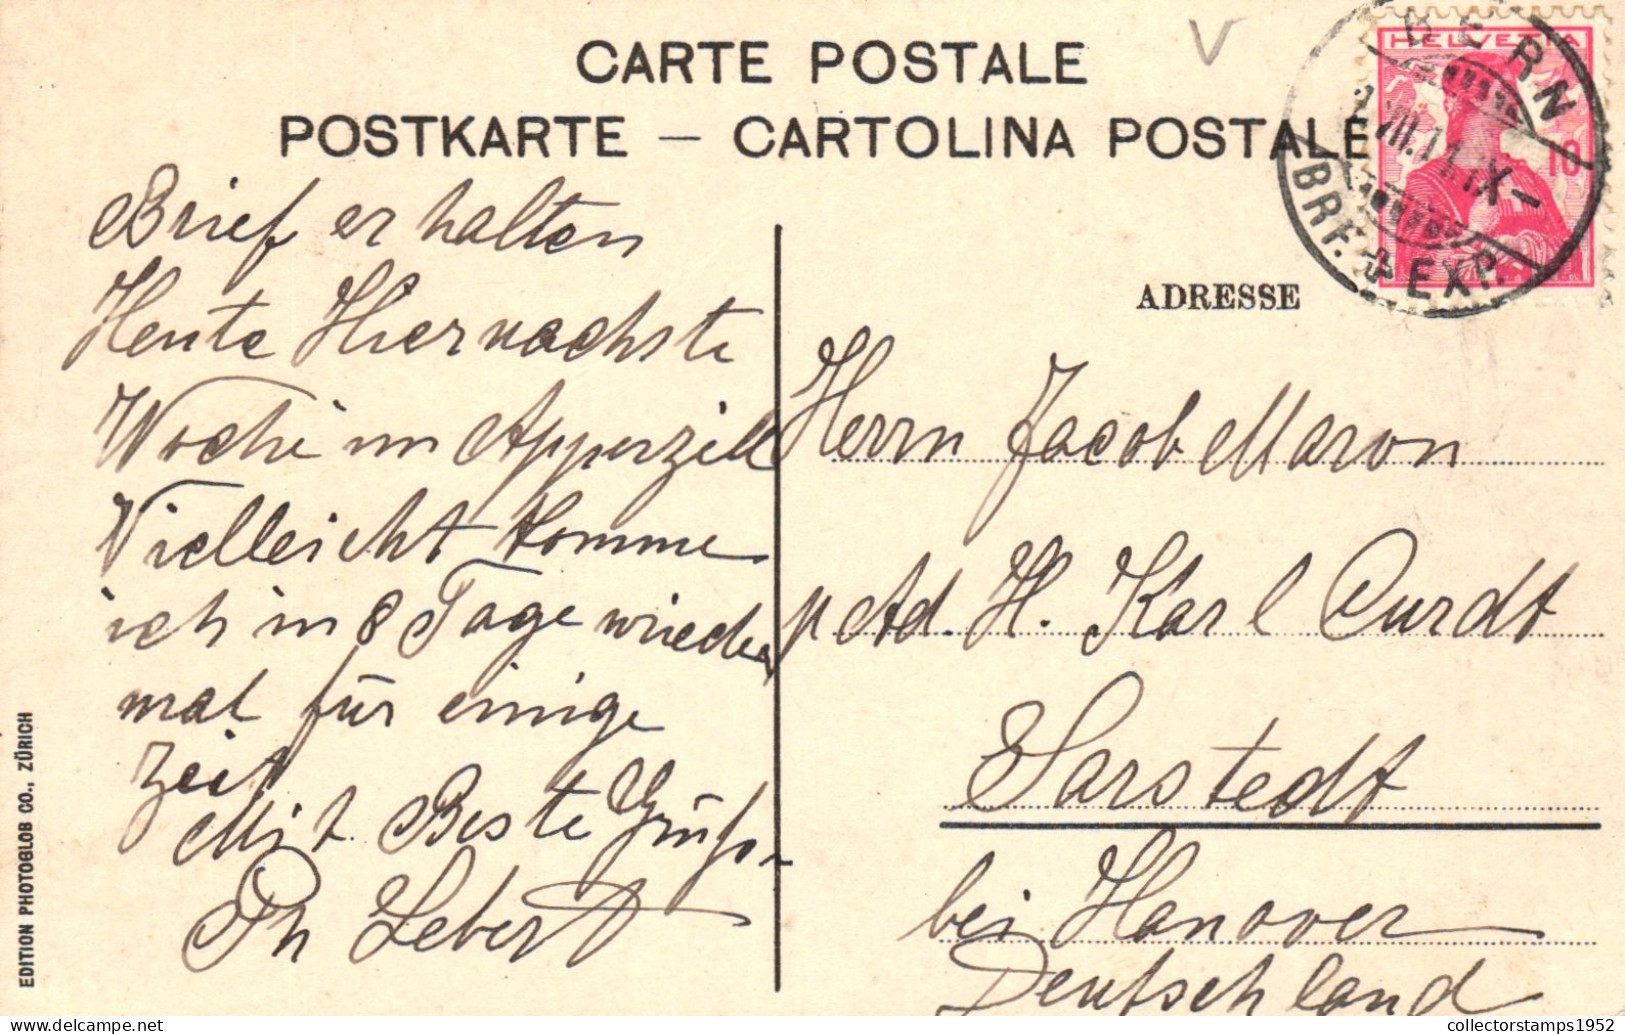 CARTE POSTALE
POSTKARTE — CARTOLINA POSTALE
HELVETIA
10
BERN
BRF. EXP.
V
ADRESSE
Brief erhalten
Heute Hier nachste
Woche im Appenzell
Vielleicht komme
ich in 8 Tage wieder
mal für einige
Zeit
Mit Beste Grüße
Ph Lebert
Herrn Jacob Maron
p Ad. H. Karl Curdt
Sarstedt
bei Hanover
Deutschland
EDITION PHOTOGLOB CO., ZÜRICH
collectorstamps1952